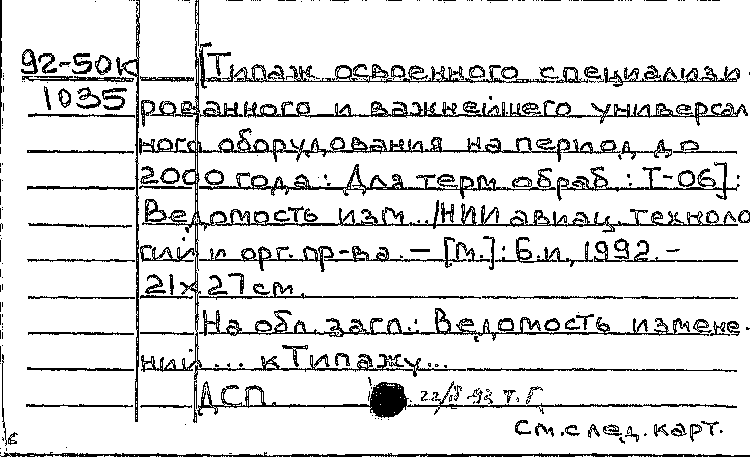 92-50к [Типаж освоенного специализи-
1035 рованного и важнейшего универсаль
ного оборудования на период до
2000 года: Для терм. обраб.: Т-06]:
Ведомость изм.../НИИ авиац. техноло
гии и орг. пр-ва. — [М.]: Б.и., 1992. –
21х27 см.
На обл. загл.: Ведомость измене-
ний ... к Типажу...
ДСП. 93 Т. Г.
См. след. карт.
6